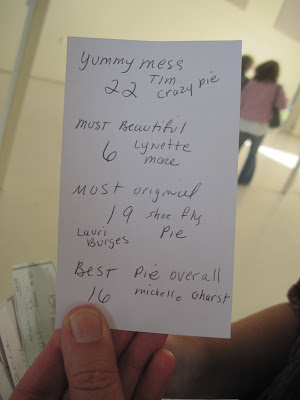 Yummy mess
22 Tim
crazy pie
most Beautiful
6 Lynette
more
Most original
19 shoe fly
Pie
Lauri
Burges
Best Pie overall
16 michelle Gharst